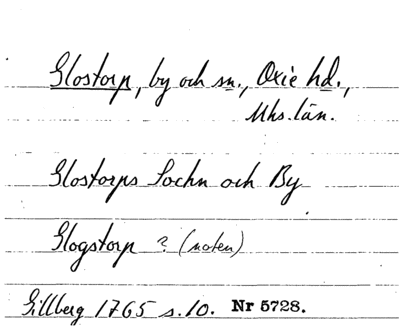 Glostorp, by och sn., Oxie hd.,
Mhs. län.
Glostorps Sochn och By
Glogstorp ? (noten)
Gillberg 1765 s. 10. Nr 5728.